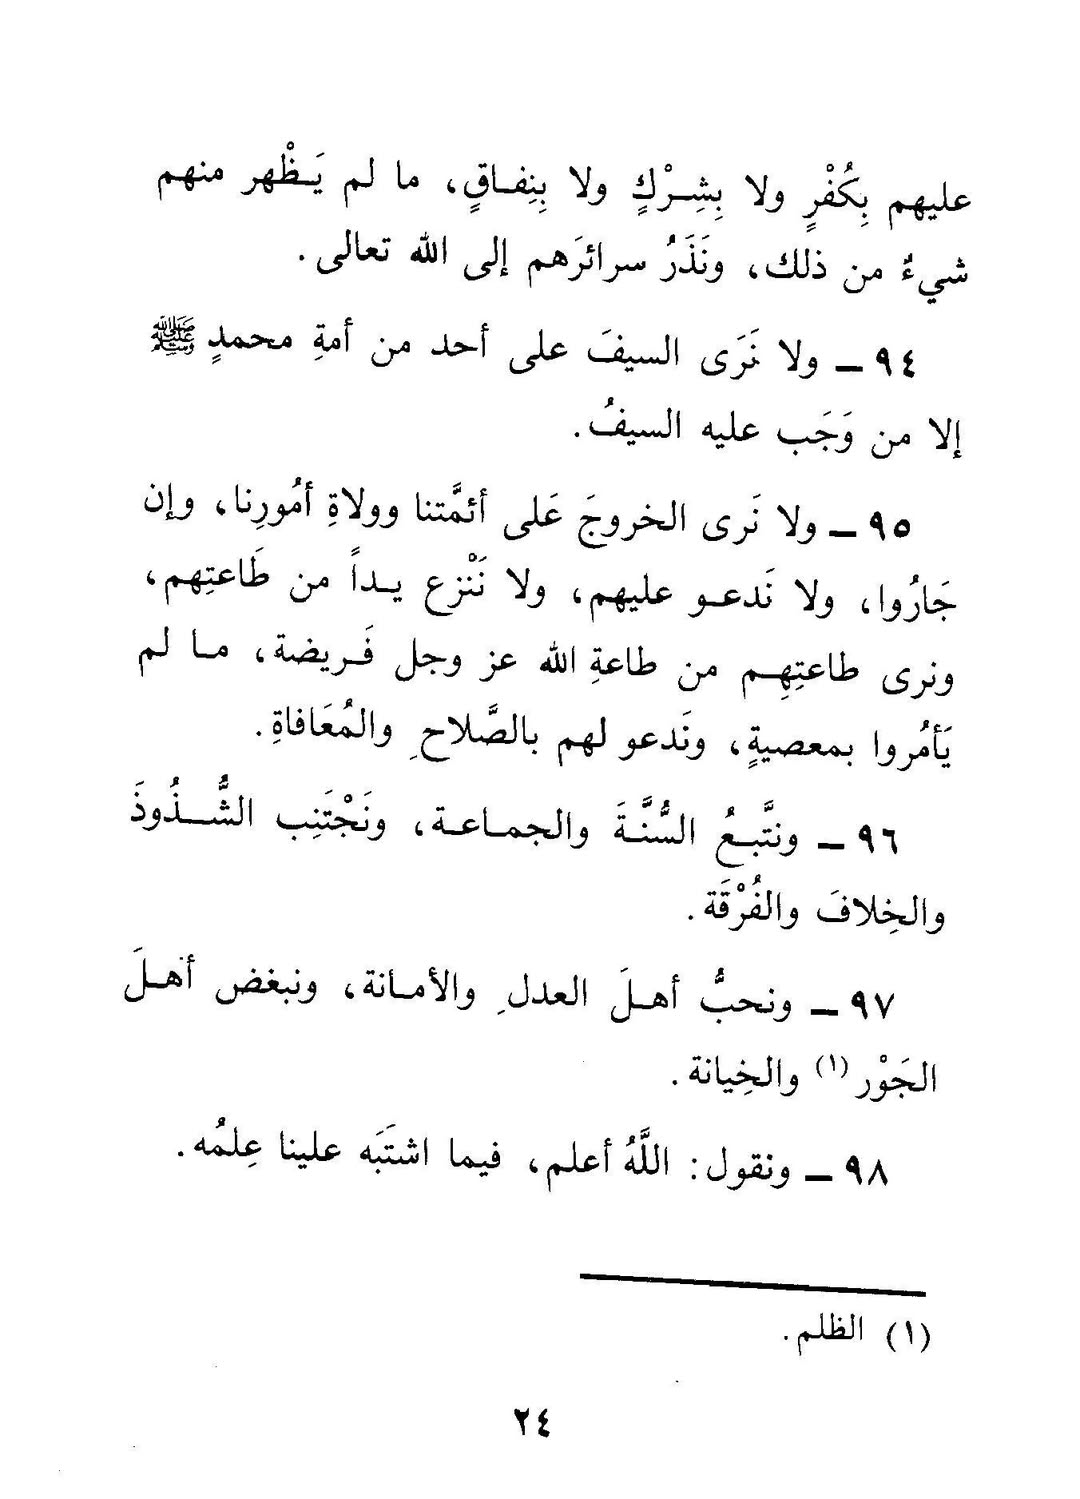 عليهم بِكُفْرٍ ولا بِشِـرْكٍ ولا بِنِفـاقٍ، ما لم يَـظْهر منهم
شيءٌ من ذلك، ونَذَرُ سرائرَهم إلى الله تعالى.
٩٤ ـ ولا نَرَى السيفَ على أحد من أمةِ محمدٍ ﷺ
إلا من وَجَب عليه السيفُ.
٩٥ ـ ولا نَرى الخروجَ عَلى أئمَّتنا وولاةِ أمُورِنا، وإن
جَارُوا، ولا نَدعـو عليهم، ولا نَنْزع يـداً من طَاعتِهم،
ونرى طاعتِهِـم من طاعةِ الله عز وجل فَـريضة، مـا لم
يَأمُروا بمعصيةٍ، ونَدعو لهم بالصَّلاحِ والمُعَافاةِ.
٩٦ ـ ونتَّبـعُ السُّنَّـةَ والجمـاعـة، ونَجْتَنِب الشُّـذُوذَ
والخِلافَ والفُرْقَة.
٩٧ ـ ونحبُّ أهـلَ العدلِ والأمـانة، ونبغض أهـلَ
الجَوْر (١) والخِيانة.
٩٨ ـ ونقول: اللَّهُ أعلم، فيما اشتَبَه علينا عِلمُه.
(١) الظلم.
٢٤